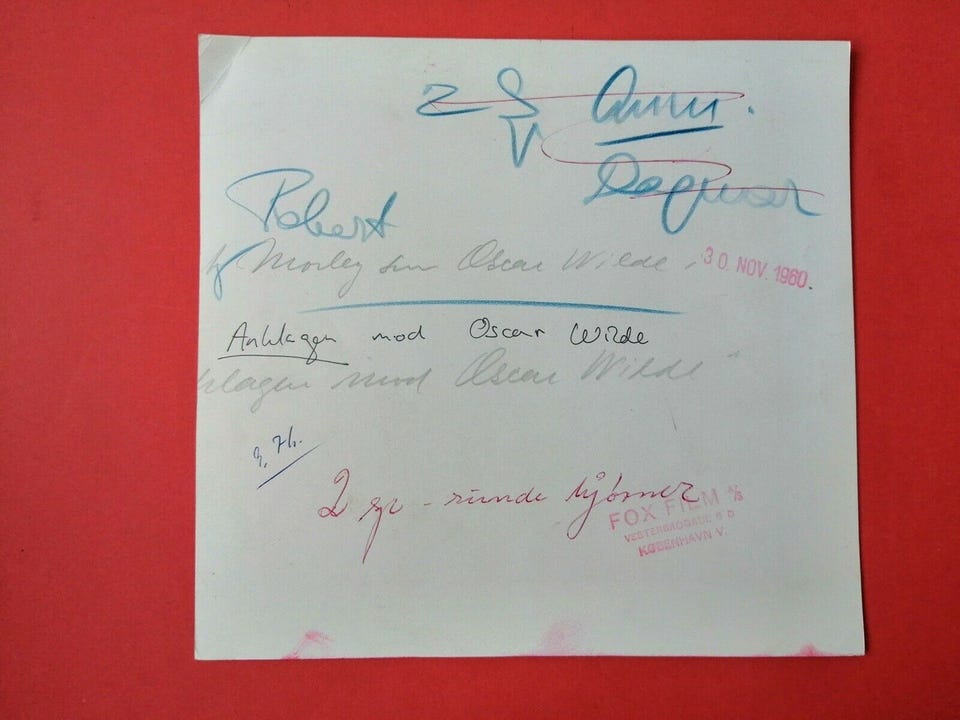 2 Sp Ann.
Dagmar
Robert
Morley som Oscar Wilde
30. NOV. 1960.
Anklagen mod Oscar Wilde
klagen mod Oscar Wilde"
2 sp - runde hjørner
FOX FILM A/S
VESTERBROGADE 6 D
KØBENHAVN V.